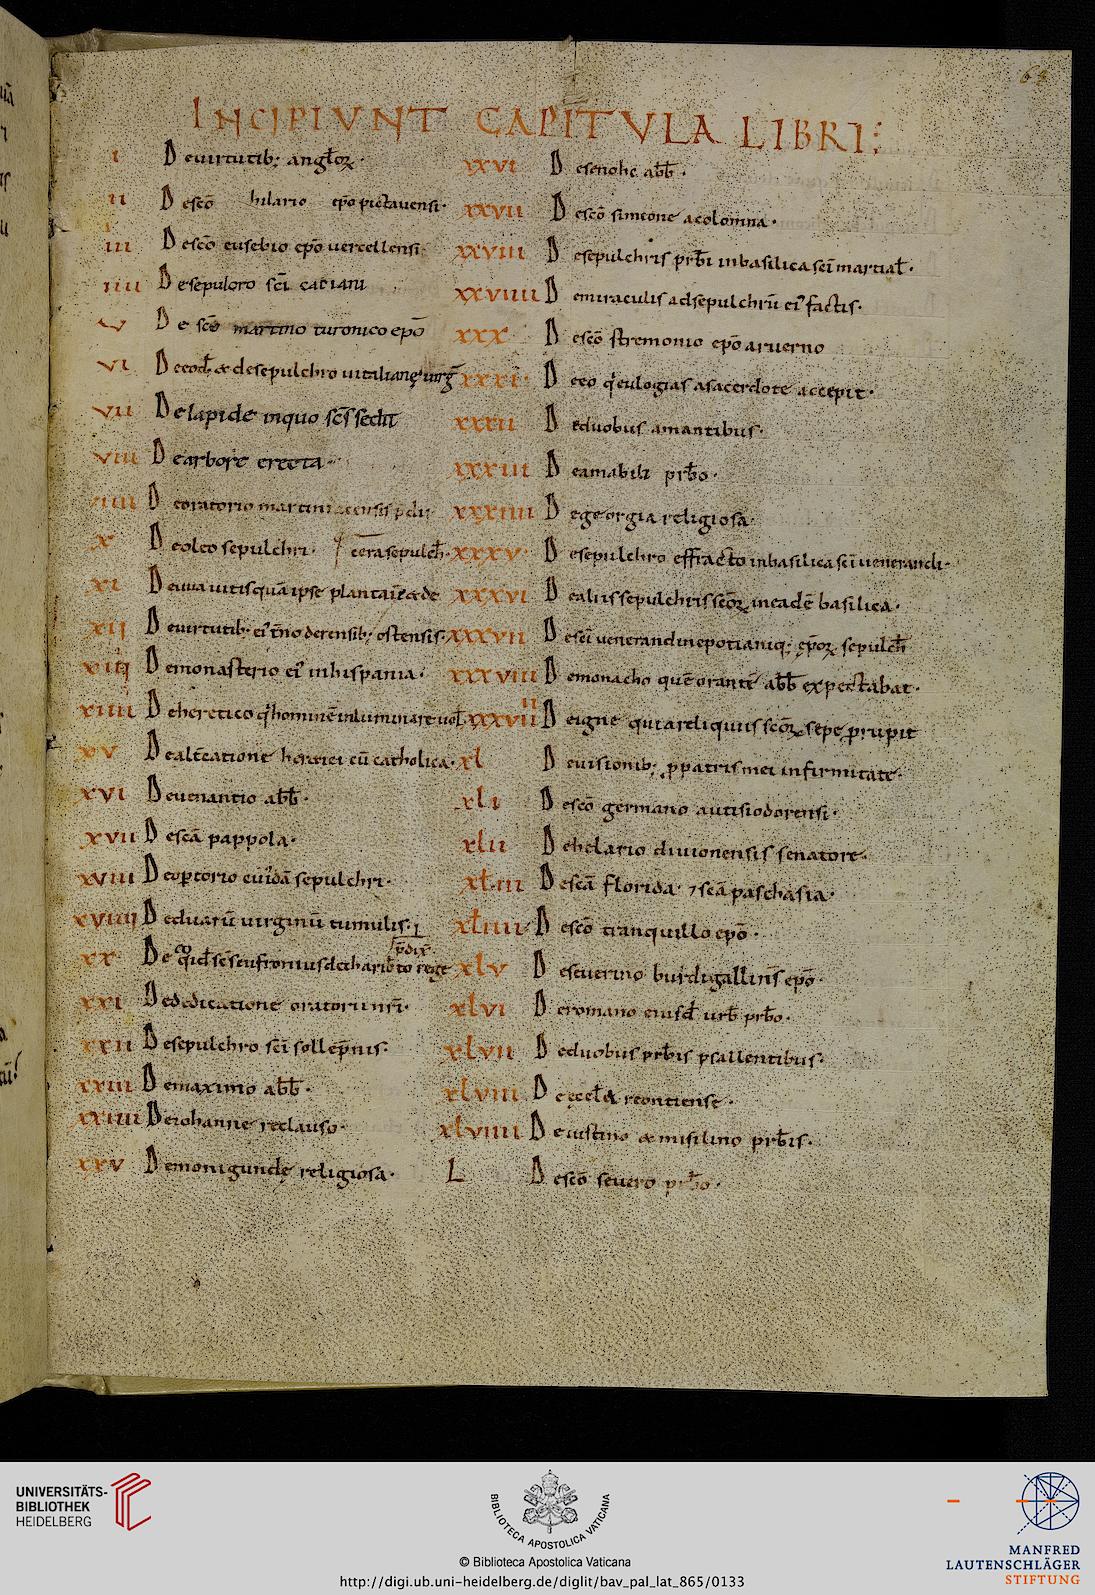 63
INCIPIUNT CAPITVLA LIBRI:
I De uirtutib; angłoꝝ·
II De scō hilario ep̄o pictauensi·
III De scō eusebio ep̄o uercellensi·
IIII De sepulcro scī catiani
V De scō martino turonico ep̄o
VI De eod̄ & de sepulchro uitalianę uirḡ
VII De lapide in quo scs̄ sedit̄
VIII De arbore erecta·
VIIII De oratorio martini
X De oleo sepulchri· cera sepulch̄·
XI De uua uitis quā ipse plantauit
XII De uirtutib; ei' ostensis·
XIII De monasterio ei' in hispania·
XIIII De heretico q̄ hominē inluminare uol̄
XV De altc̄atione heretici cū catholica·
XVI De uenantio abb̄·
XVII De scā pappola·
XVIII De coptorio cuidā sepulchri·
XVIIII De duarū uirginū tumulis·
XX De eo q'd scs̄ eufronius de chariberto rege p̄dix̄
XXI De dedicatione oratorii nrī·
XXII De sepulchro scī sollep̄nis·
XXIII De maximo abb̄·
XXIIII De iohanne reclauso·
XXV De monigundę religiosa·
XXVI De senohc abb̄·
XXVII De scō simeone a colomna·
XXVIII De sepulchris prb̄i in basilica scī martial̄·
XXVIIII De miraculis ad sepulchrū ei' factis·
XXX De scō stremonio ep̄o aruerno
XXXI De eo q' eulogias a sacerdote accepit·
XXXII De duobus amantibus·
XXXIII De amabili prb̄o·
XXXIIII De georgia religiosa·
XXXV De sepulchro effracto in basilica scī uenerandi·
XXXVI De aliis sepulchris scōꝝ in eadē basilica·
XXXVII De scī uenerandi nepotianiq; ep̄oꝝ sepulch̄
XXXVIII De monacho quē orantē abb̄ expectabat·
XXXVIIII De igne qui a reliquiis scōꝝ sepe prupit
XL De uisionib; ꝓ patris mei infirmitate·
XLI De scō germano autisiodorensi·
XLII De helario diuionensis senatore·
XLIII De scā florida· ⁊ scā paschasia·
XLIIII De scō tranquillo ep̄o·
XLV De seuerino burdigallins̄ ep̄o·
XLVI De romano eiusd̄ urb̄ prb̄o·
XLVII De duobus prb̄is psallentibus·
XLVIII De reontiense·
XLVIIII De iustino & misilino prb̄is·
L De scō seuero prb̄o·
UNIVERSITÄTS-
BIBLIOTHEK
HEIDELBERG
BIBLIOTECA APOSTOLICA VATICANA
© Biblioteca Apostolica Vaticana
http://digi.ub.uni-heidelberg.de/diglit/bav_pal_lat_865/0133
MANFRED
LAUTENSCHLÄGER
STIFTUNG